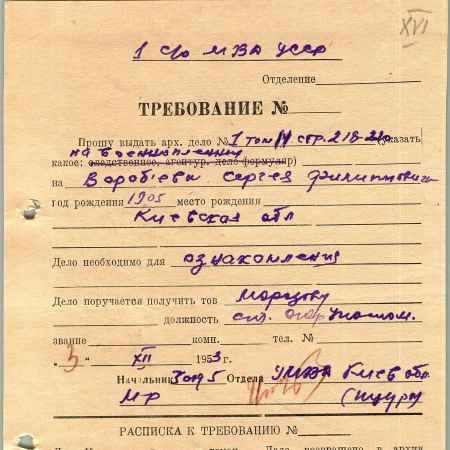 XVI
1 с/о МВД УССР
Отделение
ТРЕБОВАНИЕ №
Прошу выдать арх. дело № 1 том стр. 218- (указать
на военнопленных
какое: следственное, агентур, дело формуляр)
на Воробьева Сергея Филипповича
год рождения 1905 место рождения
Киевская обл
Дело необходимо для ознакомления
Дело поручается получить тов
должность ст.
звание комн. тел. №
"3" XII 1953 г.
Начальник Отдела УМВД Киев обл.
М-р
РАСПИСКА К ТРЕБОВАНИЮ №